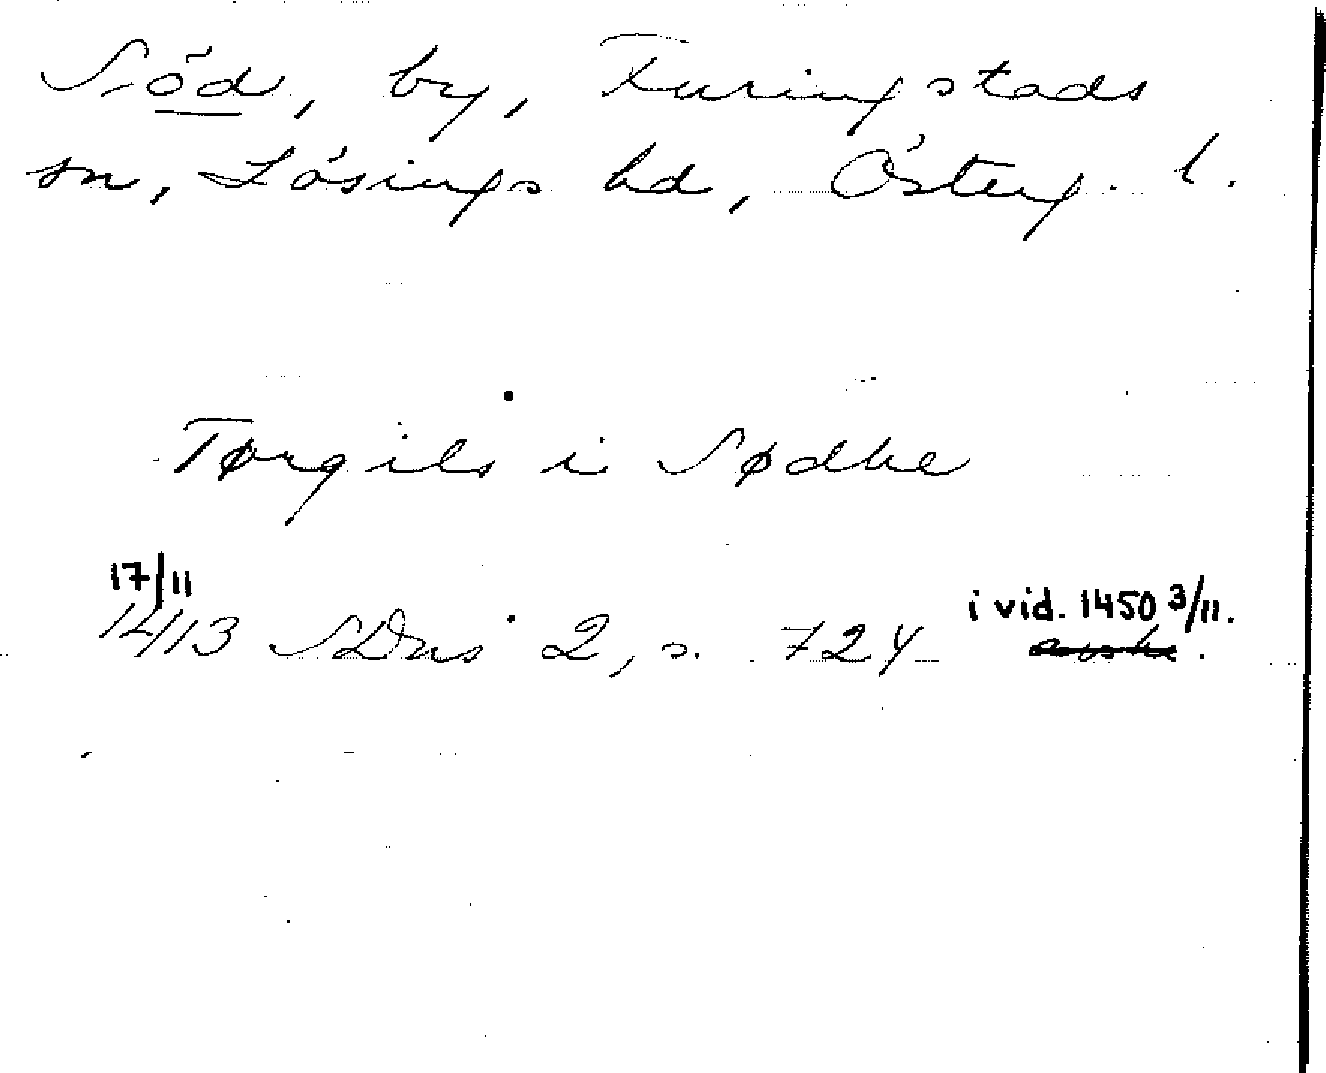 Söd, by, Furingstads
sn, Lösings hd, Österg. l.
Tørgils i Sødhe
17/11
1413 SDns 2, s. 724 i vid. 1450 3/11.